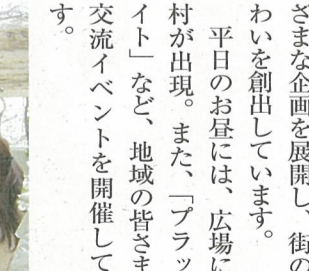 ざまな企画を展開し、街の
わいを創出しています。
平日のお昼には、広場に
村が出現。また、「プラッ
イト」など、地域の皆さま
交流イベントを開催して
す。